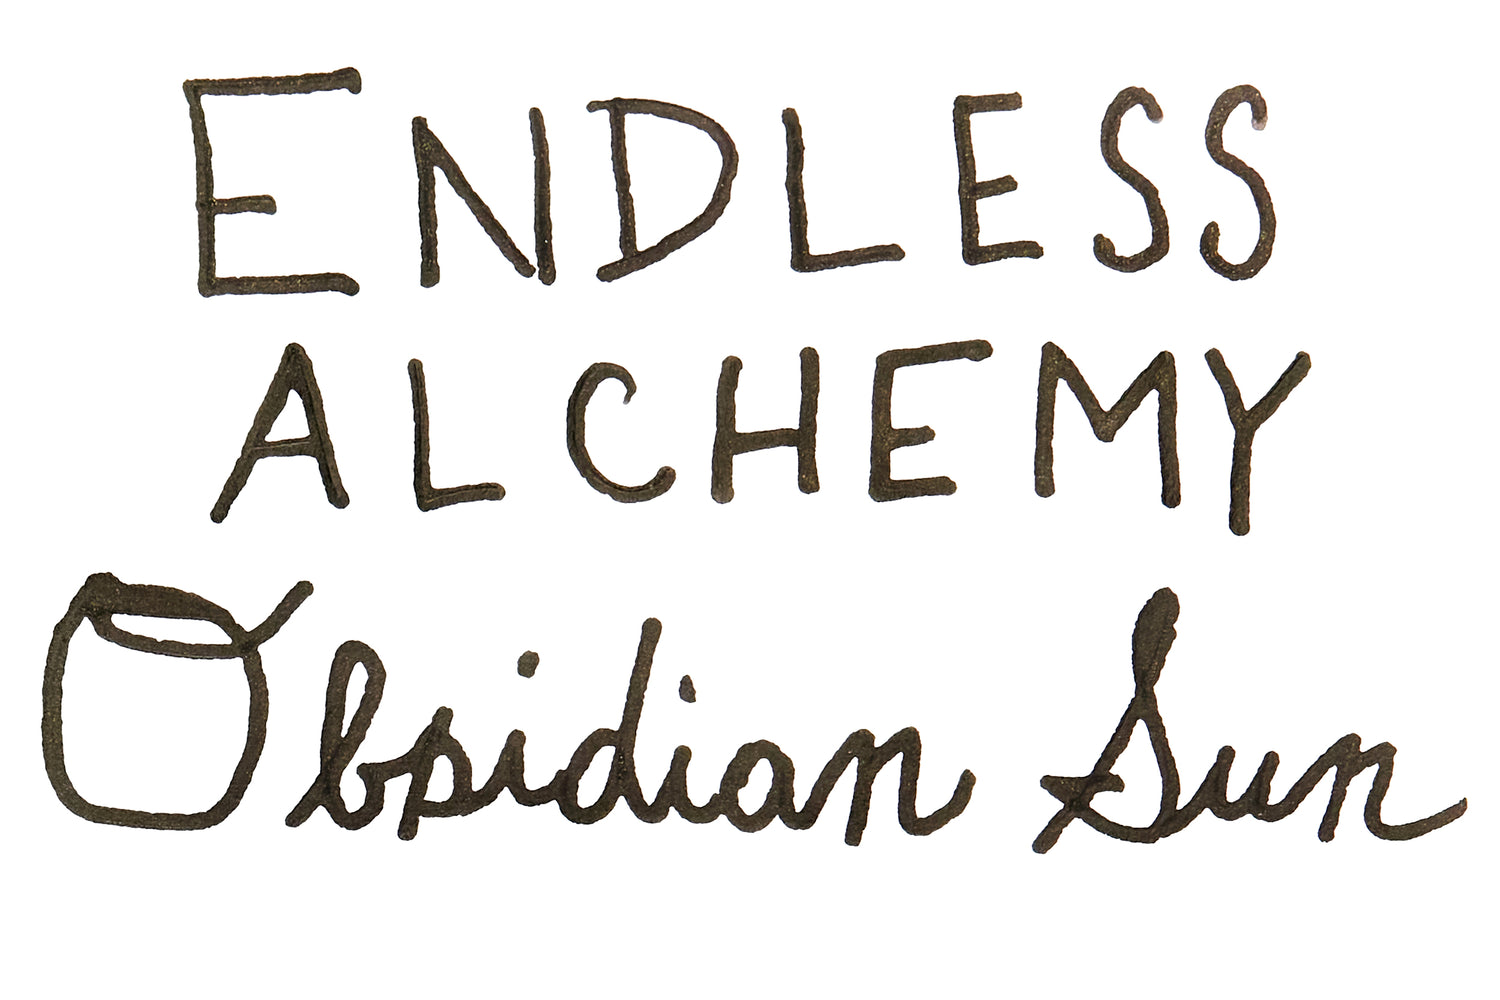 ENDLESS
ALCHEMY
Obsidian Sun